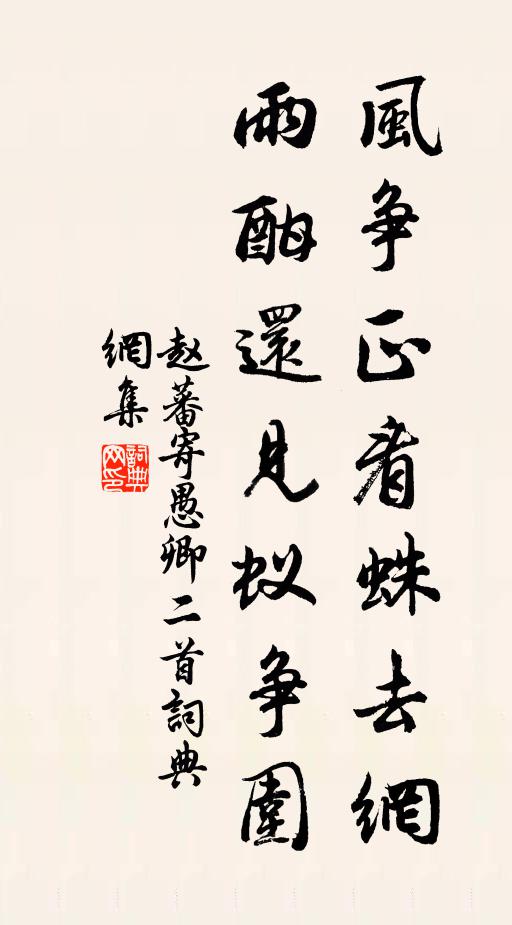 風争正看蛛去網
雨酣還見蚁争圍
赵蕃寄愚卿二首詞典
網集
詞典
网印